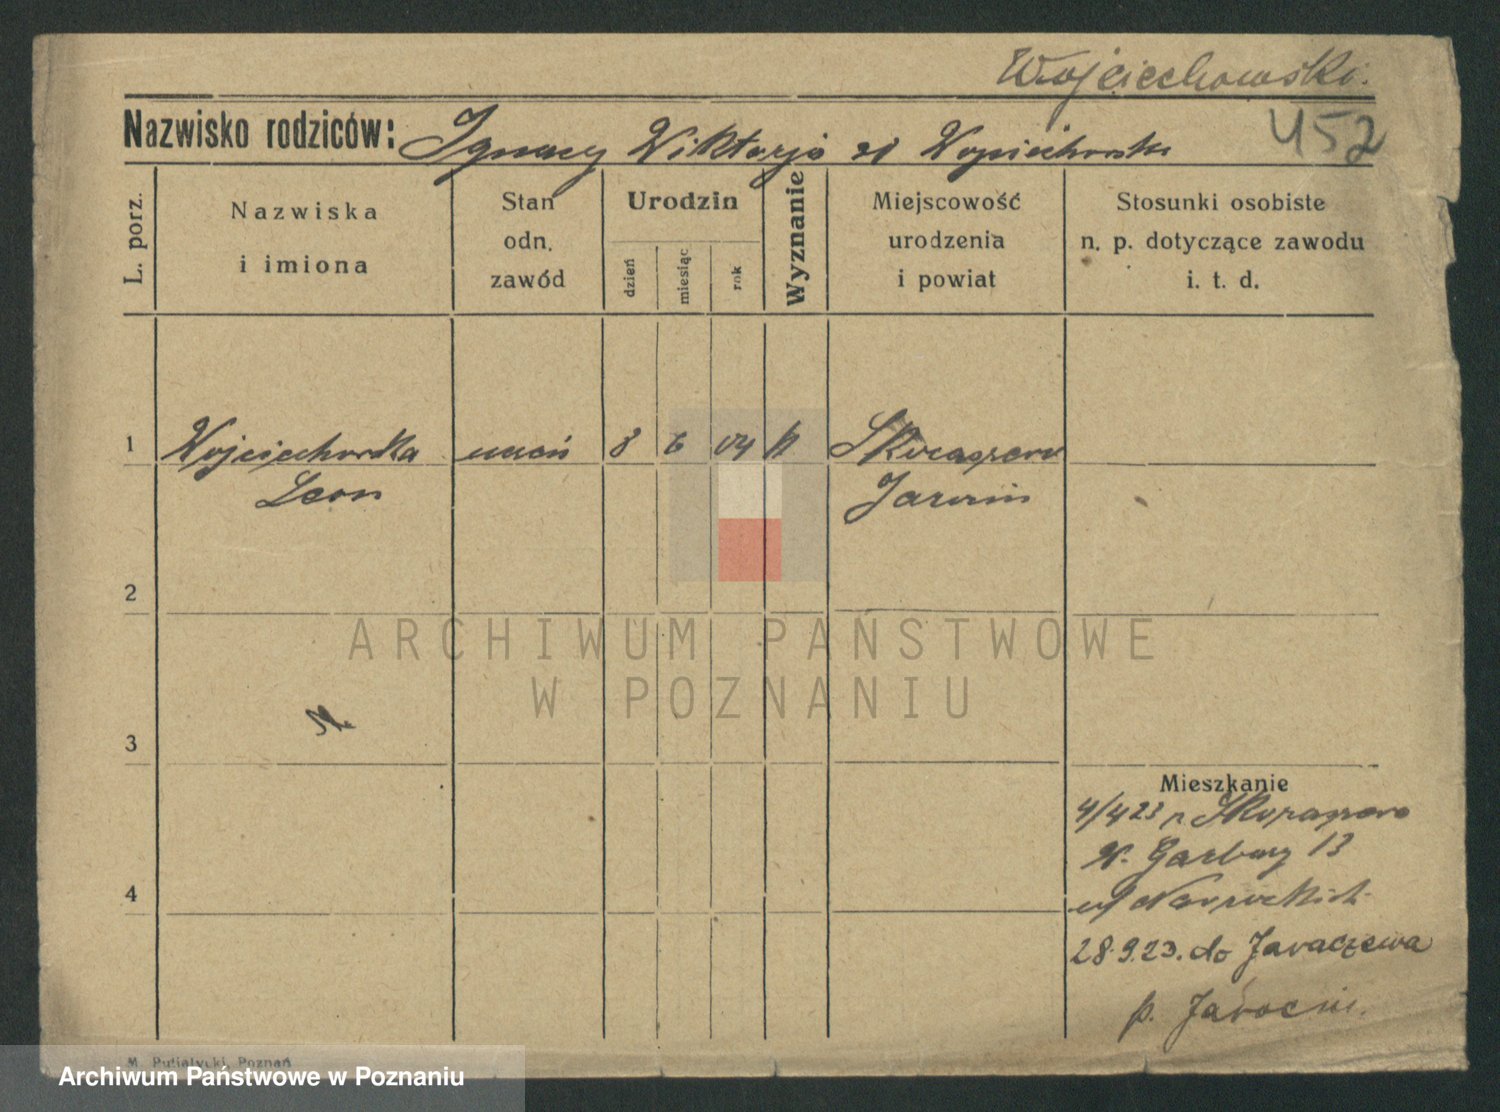 Wojciechowski.
452
Nazwisko rodziców: Ignacy Wiktorja
L. porz.
Nazwiska
i imiona
Stan
odn.
zawód
Urodzin
dzień
miesiąc
rok
Wyznanie
Miejscowość
urodzenia
i powiat
Stosunki osobiste
n. p. dotyczące zawodu
i. t. d.
1 Wojciechowska uczeń 8 6 04 k
Leon Jarocin
2
ARCHIWUM PAŃSTWOWE
W POZNANIU
3
Mieszkanie
4/4 23
W. Garbary 13
4
28.9.23. do Jaraczewa
p. Jarocin.
M. Putiatycki, Poznań
Archiwum Państwowe w Poznaniu